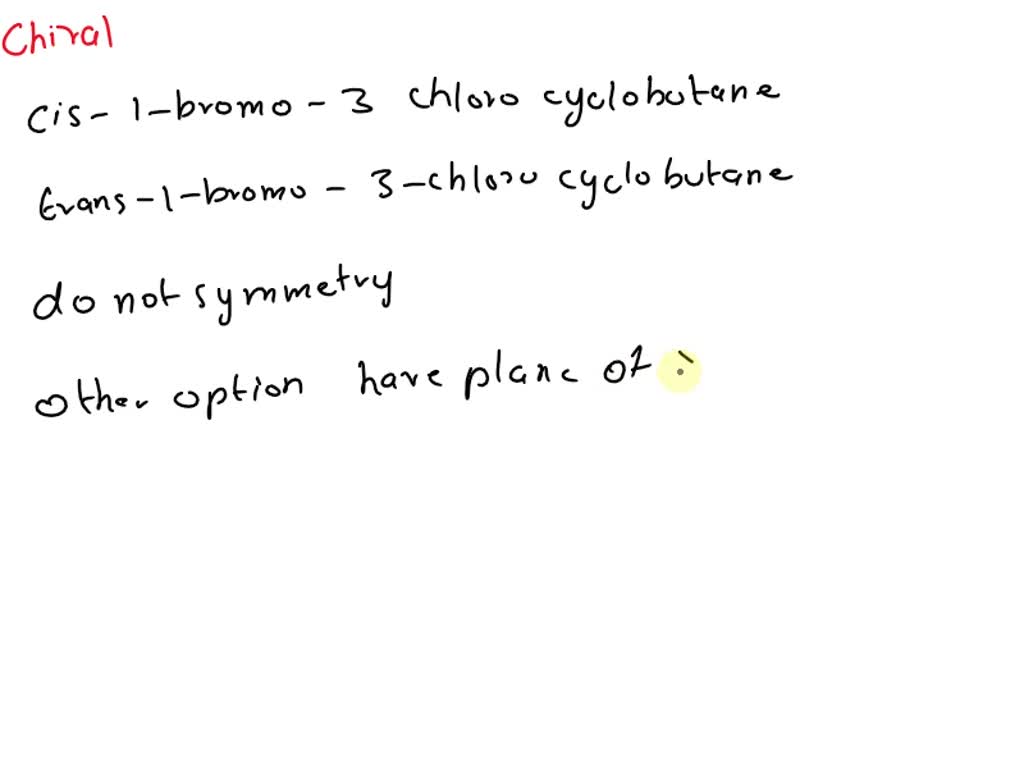 Chiral
cis- 1-bromo - 3 chloro cyclobutane
trans -1-bromo - 3-chloro cyclobutane
do not symmetry
other option have plane of